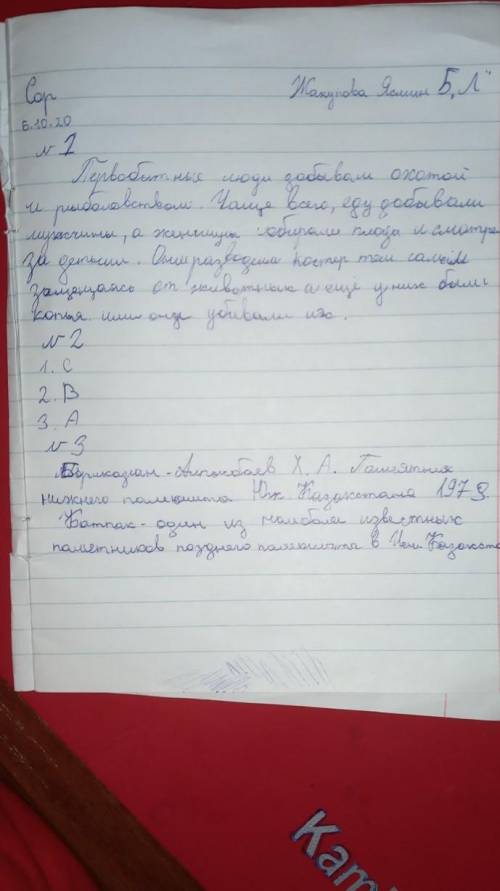 Сор Жакупова Ясмин 5 „Л"
6.10.20
№ 1
Первобытные люди добывали охотой
и рыболовством. Чаще всего, еду добывали
мужчины, а женщины собирали плоды и смотрели
за детьми. Они разводили костер тем самым
защищаясь от животных а ещё у них были
копья ими они убивали их.
№ 2
1. С
2. В
3. А
№ 3
Борыказган - Алпысбаев Х. А. Памятник
нижнего палеолита Юж Казахстана 1973.
Батпак - один из наиболее известных
памятников позднего палеолита в Цен Казахста
Kam